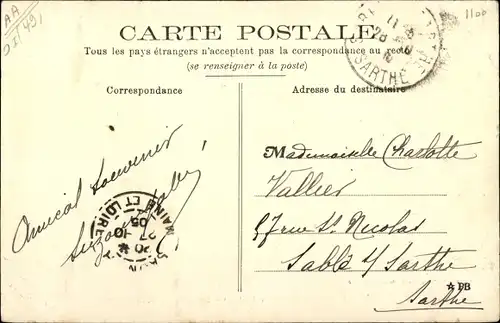 AA
1100
CARTE POSTALE
Tous les pays étrangers n'acceptent pas la correspondance au recto
(se renseigner à la poste)
SARTHE
Correspondance
Adresse du destinataire
Amical souvenir
MAINE ET LOIRE
Mademoiselle Charlotte
Vallier
57 rue St Nicolas
Sablé s/ Sarthe
Sarthe